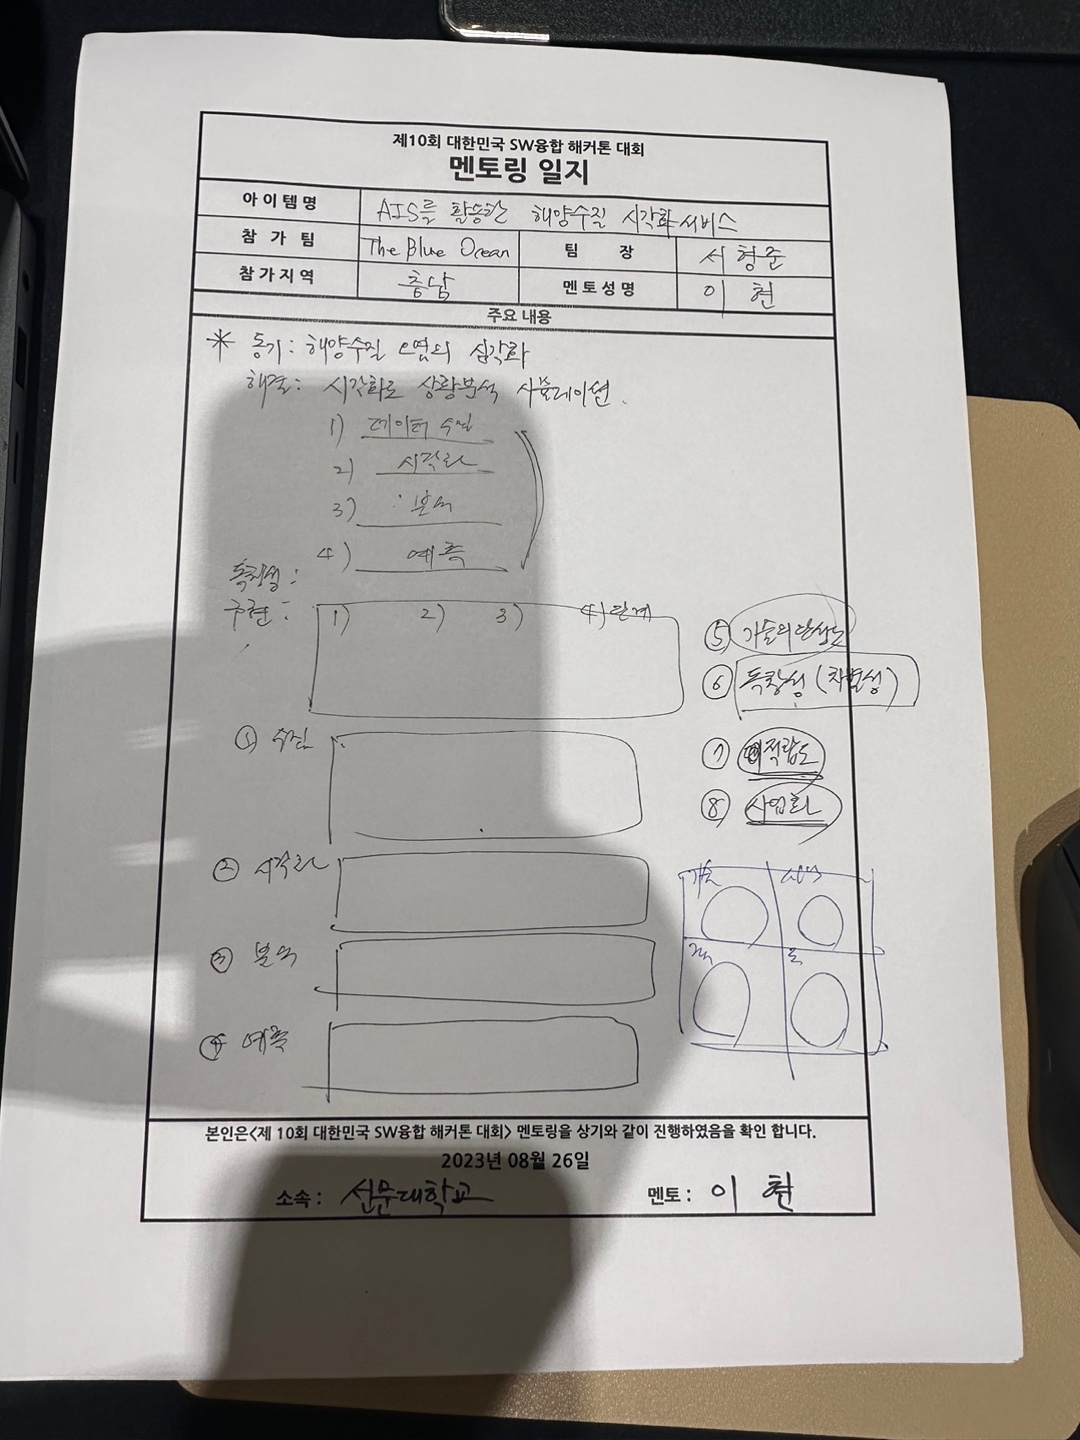 제10회 대한민국 SW융합 해커톤 대회
멘토링 일지
아이템명 AIS를 활용한 해양수질 시각화 서비스
참 가 팀 The Blue Ocean 팀 장 서형준
참가지역 충남 멘토성명 이 현
주요 내용
* 동기 : 해양수질 오염의 심각화
해결 : 시각화로 상황분석 시뮬레이션.
1) 데이터 수집
2) 시각화
3) 분석
4) 예측
독창성 :
구현 : 1) 2) 3) 4) 단계
⑤ 기술의 완성도
⑥ 독창성 (차별성)
① 수집
⑦ 적합도
⑧ 사업화
② 시각화
③ 분석
④ 예측
본인은<제 10회 대한민국 SW융합 해커톤 대회> 멘토링을 상기와 같이 진행하였음을 확인 합니다.
2023년 08월 26일
소속 : 선문대학교 멘토 : 이 현